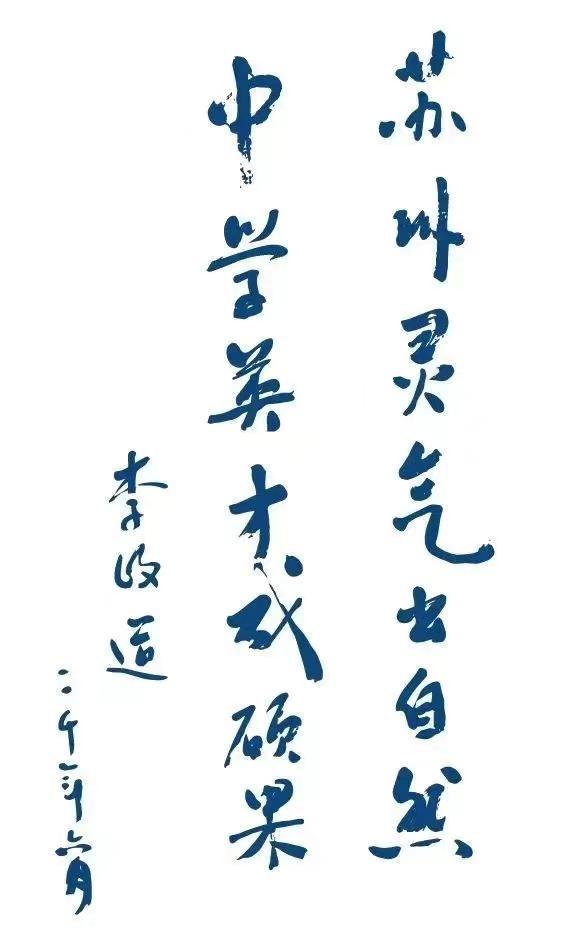 苏州灵气出自然
中学英才成硕果
李政道
二千年六月